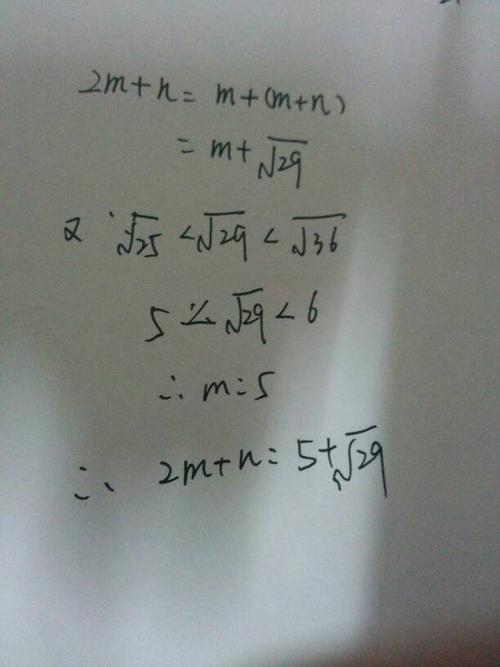 2m+n=m+(m+n)
=m+√29
又∵√25<√29<√36
5<√29<6
∴m=5
∴2m+n=5+√29